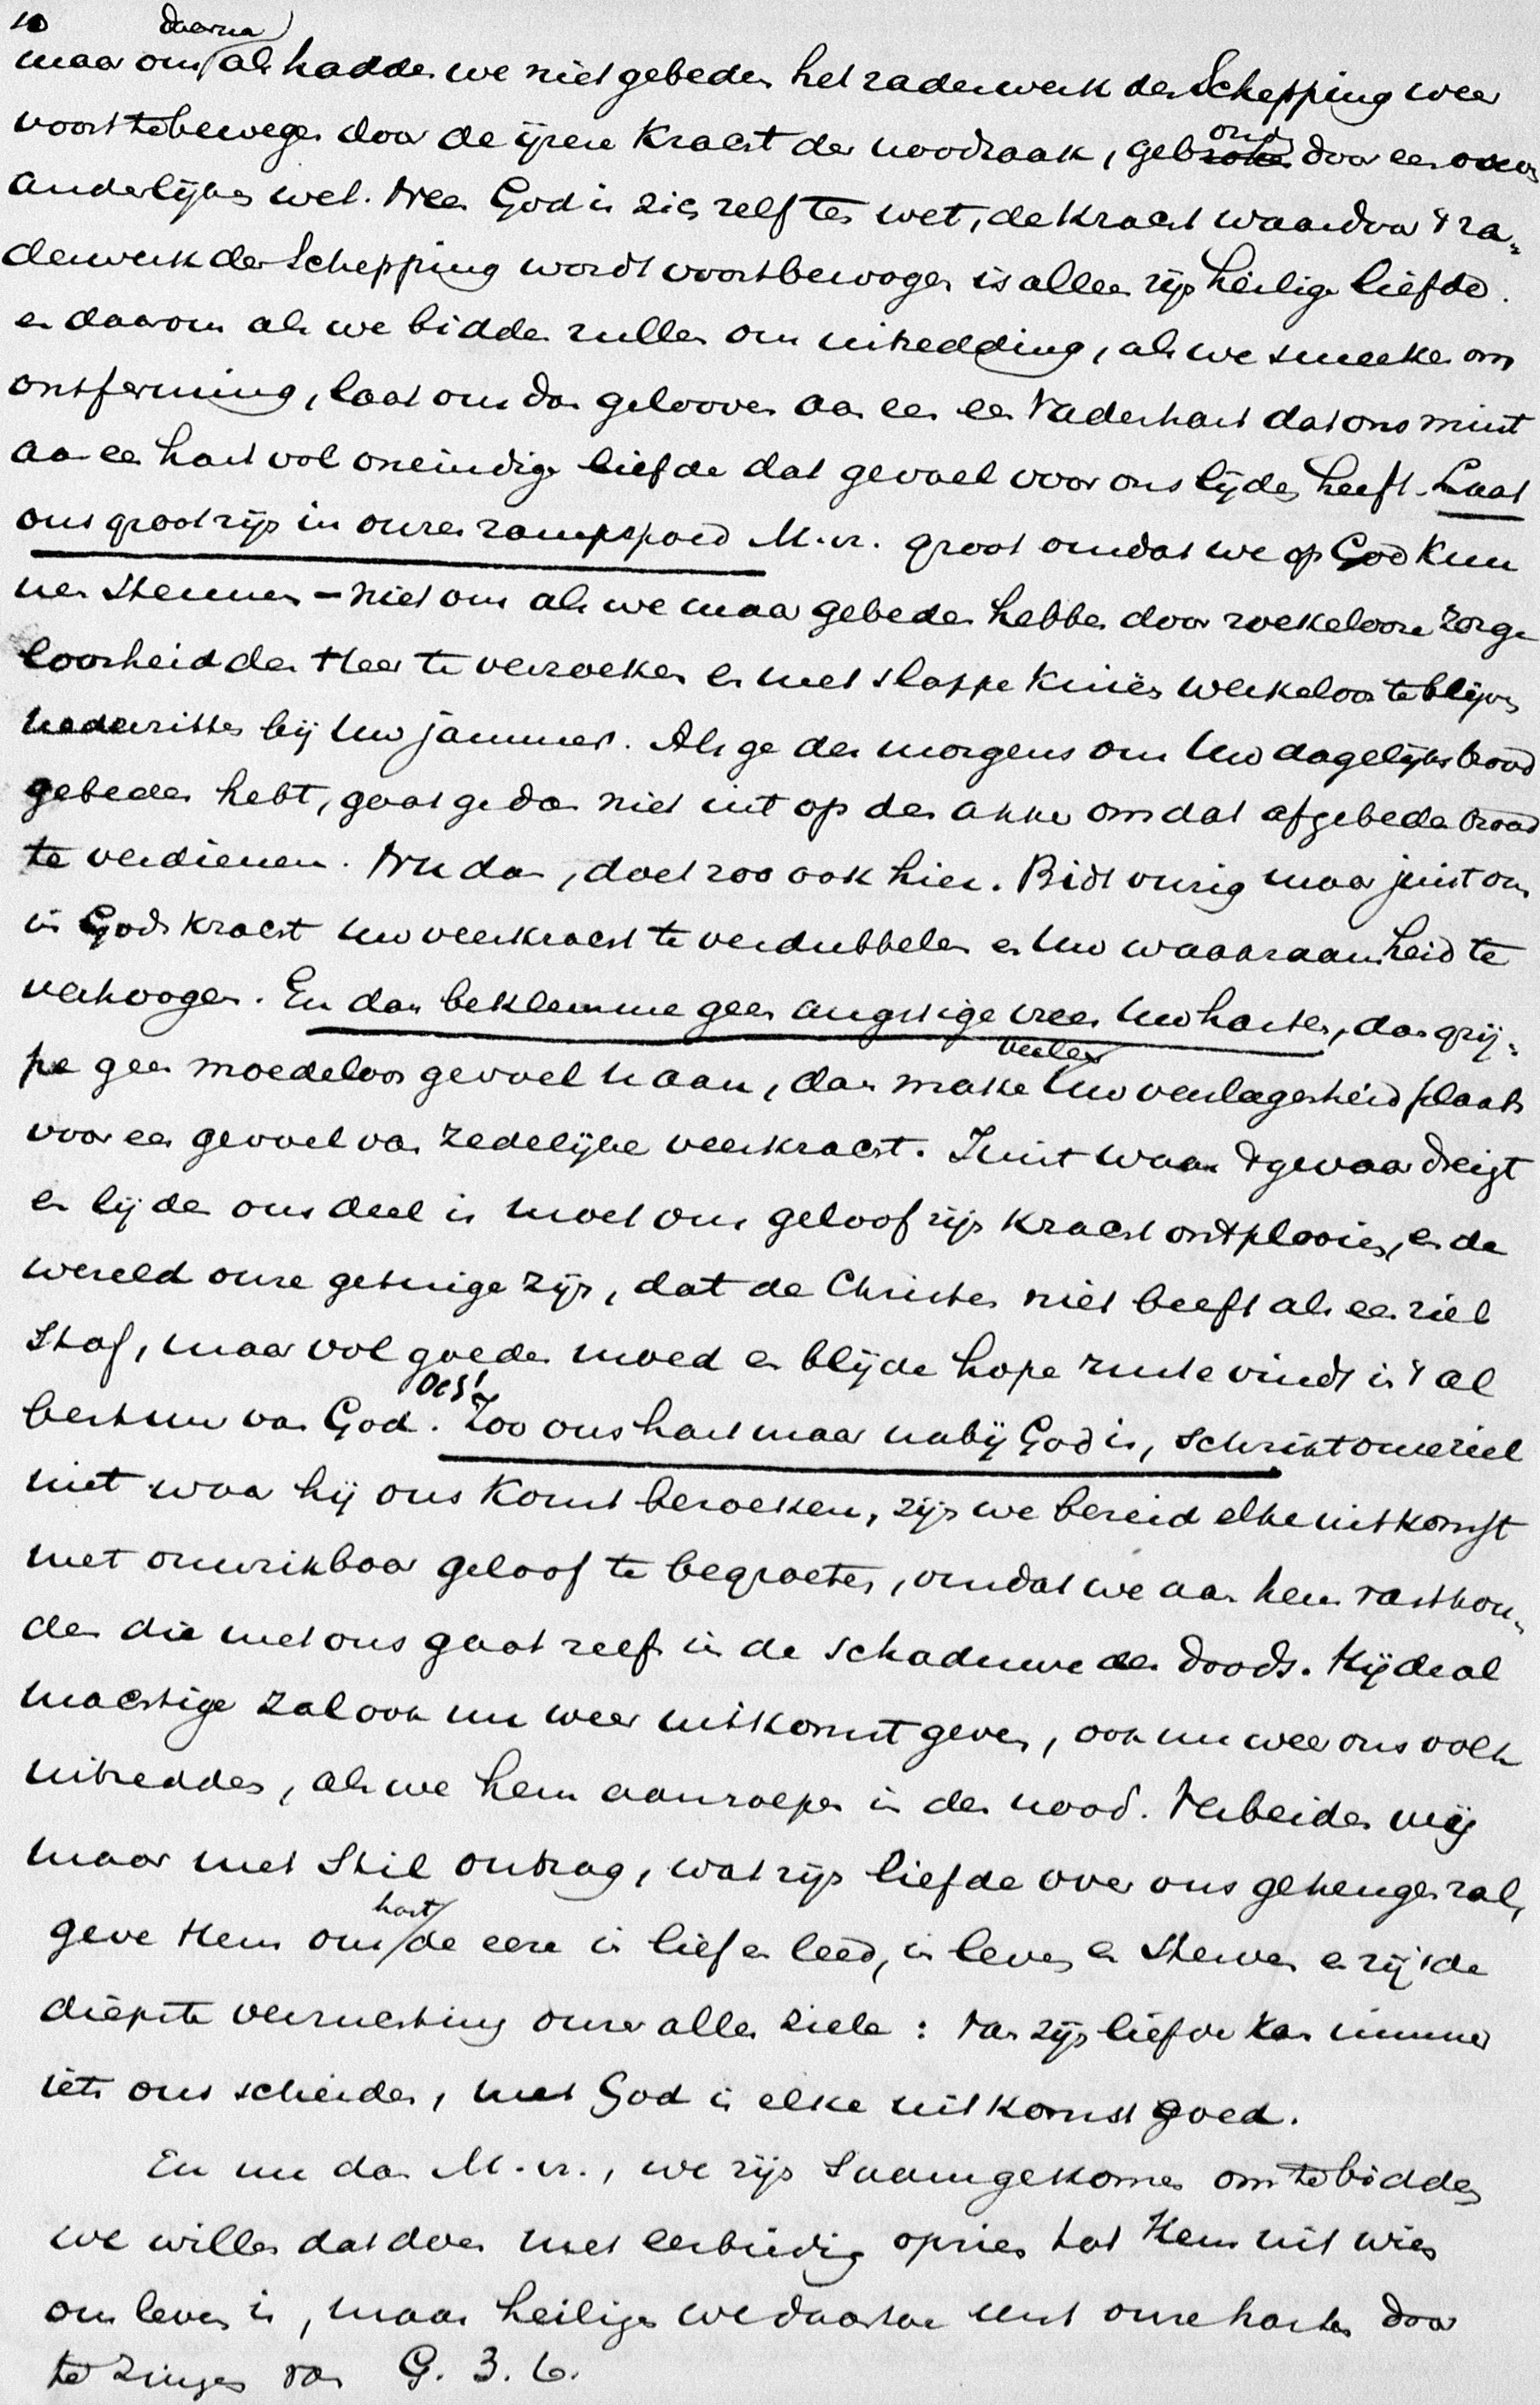 10 daarna
maar om als hadden we niet gebeden het raderwerk der Schepping weer
voort te bewegen door de ijzere kracht der noodzaak, gebonden door een onver
anderlijke wet. Neen God is zich zelf ten wet, de kracht waardoor 't ra-
derwerk der Schepping wordt voortbewogen is alleen zijn heilige liefde.
en daarom als we bidden zullen om uitredding, als we smeeken om
ontferming, laat ons dan gelooven aan een een Vaderhart dat ons mint
aan een hart vol oneindige liefde dat gevoel voor ons lijden heeft. Laat
ons groot zijn in onzen rampspoed M. vr. groot omdat we op God kun
nen steunen – niet om als we maar gebeden hebben door roekelooze zorge
loosheid den Heer te verzoeken en met slappe kniën werkeloos te blijven
nederzitten bij Uw jammer. Als ge des morgens om Uw dagelijks brood
gebeden hebt, gaat ge dan niet uit op den akker om dat afgebeden brood
te verdienen. Nu dan, doet zoo ook hier. Bidt vurig maar juist om
in Gods kracht Uw veerkracht te verdubbelen en Uw waakzaamheid te
verhoogen. En dan beklemme geen angstige vrees Uw harten, dan grij-
pe geen moedeloos gevoel U aan, dan make Uw verslagenheid plaats
voor een gevoel van zedelijke veerkracht. Juist waar 't gevaar dreigt
en lijden ons deel is moet ons geloof zijn kracht ontplooien, en de
wereld onze getuige zijn, dat de Christen niet beeft als een riet
Staf, maar vol goeden moed en blijde hope ruste vindt in 't al
bestuur van God. Zoo ons hart maar nabij God is, schrikt onze ziel
niet waar hij ons komt bezoeken, zijn we bereid elke uitkomst
met onwrikbaar geloof te begroeten, omdat we aan hem vasthou-
den die met ons gaat zelfs in de schaduwe des doods. Hij de al
machtige zal ook nu weer uitkomst geven, ook nu weer ons volk
uitredden, als we hem aanroepen in den nood. Verbeiden wij
maar met stil ontzag, wat zijn liefde over ons gehengen zal,
geve Hem ons hart de eere in lief en leed, in leven en sterven en zij 'de
diepste verzuchting onzer aller ziele: Van zijn liefde kan immer
iets ons scheiden, met God is elke uitkomst goed.
En nu dan M. vr., we zijn saamgekomen om te bidden
we willen dat doen met eerbiedig opzien tot Hem uit wien
ons leven is, maar heiligen we daartoe eerst onze harten door
te zingen van G. 3. 6.